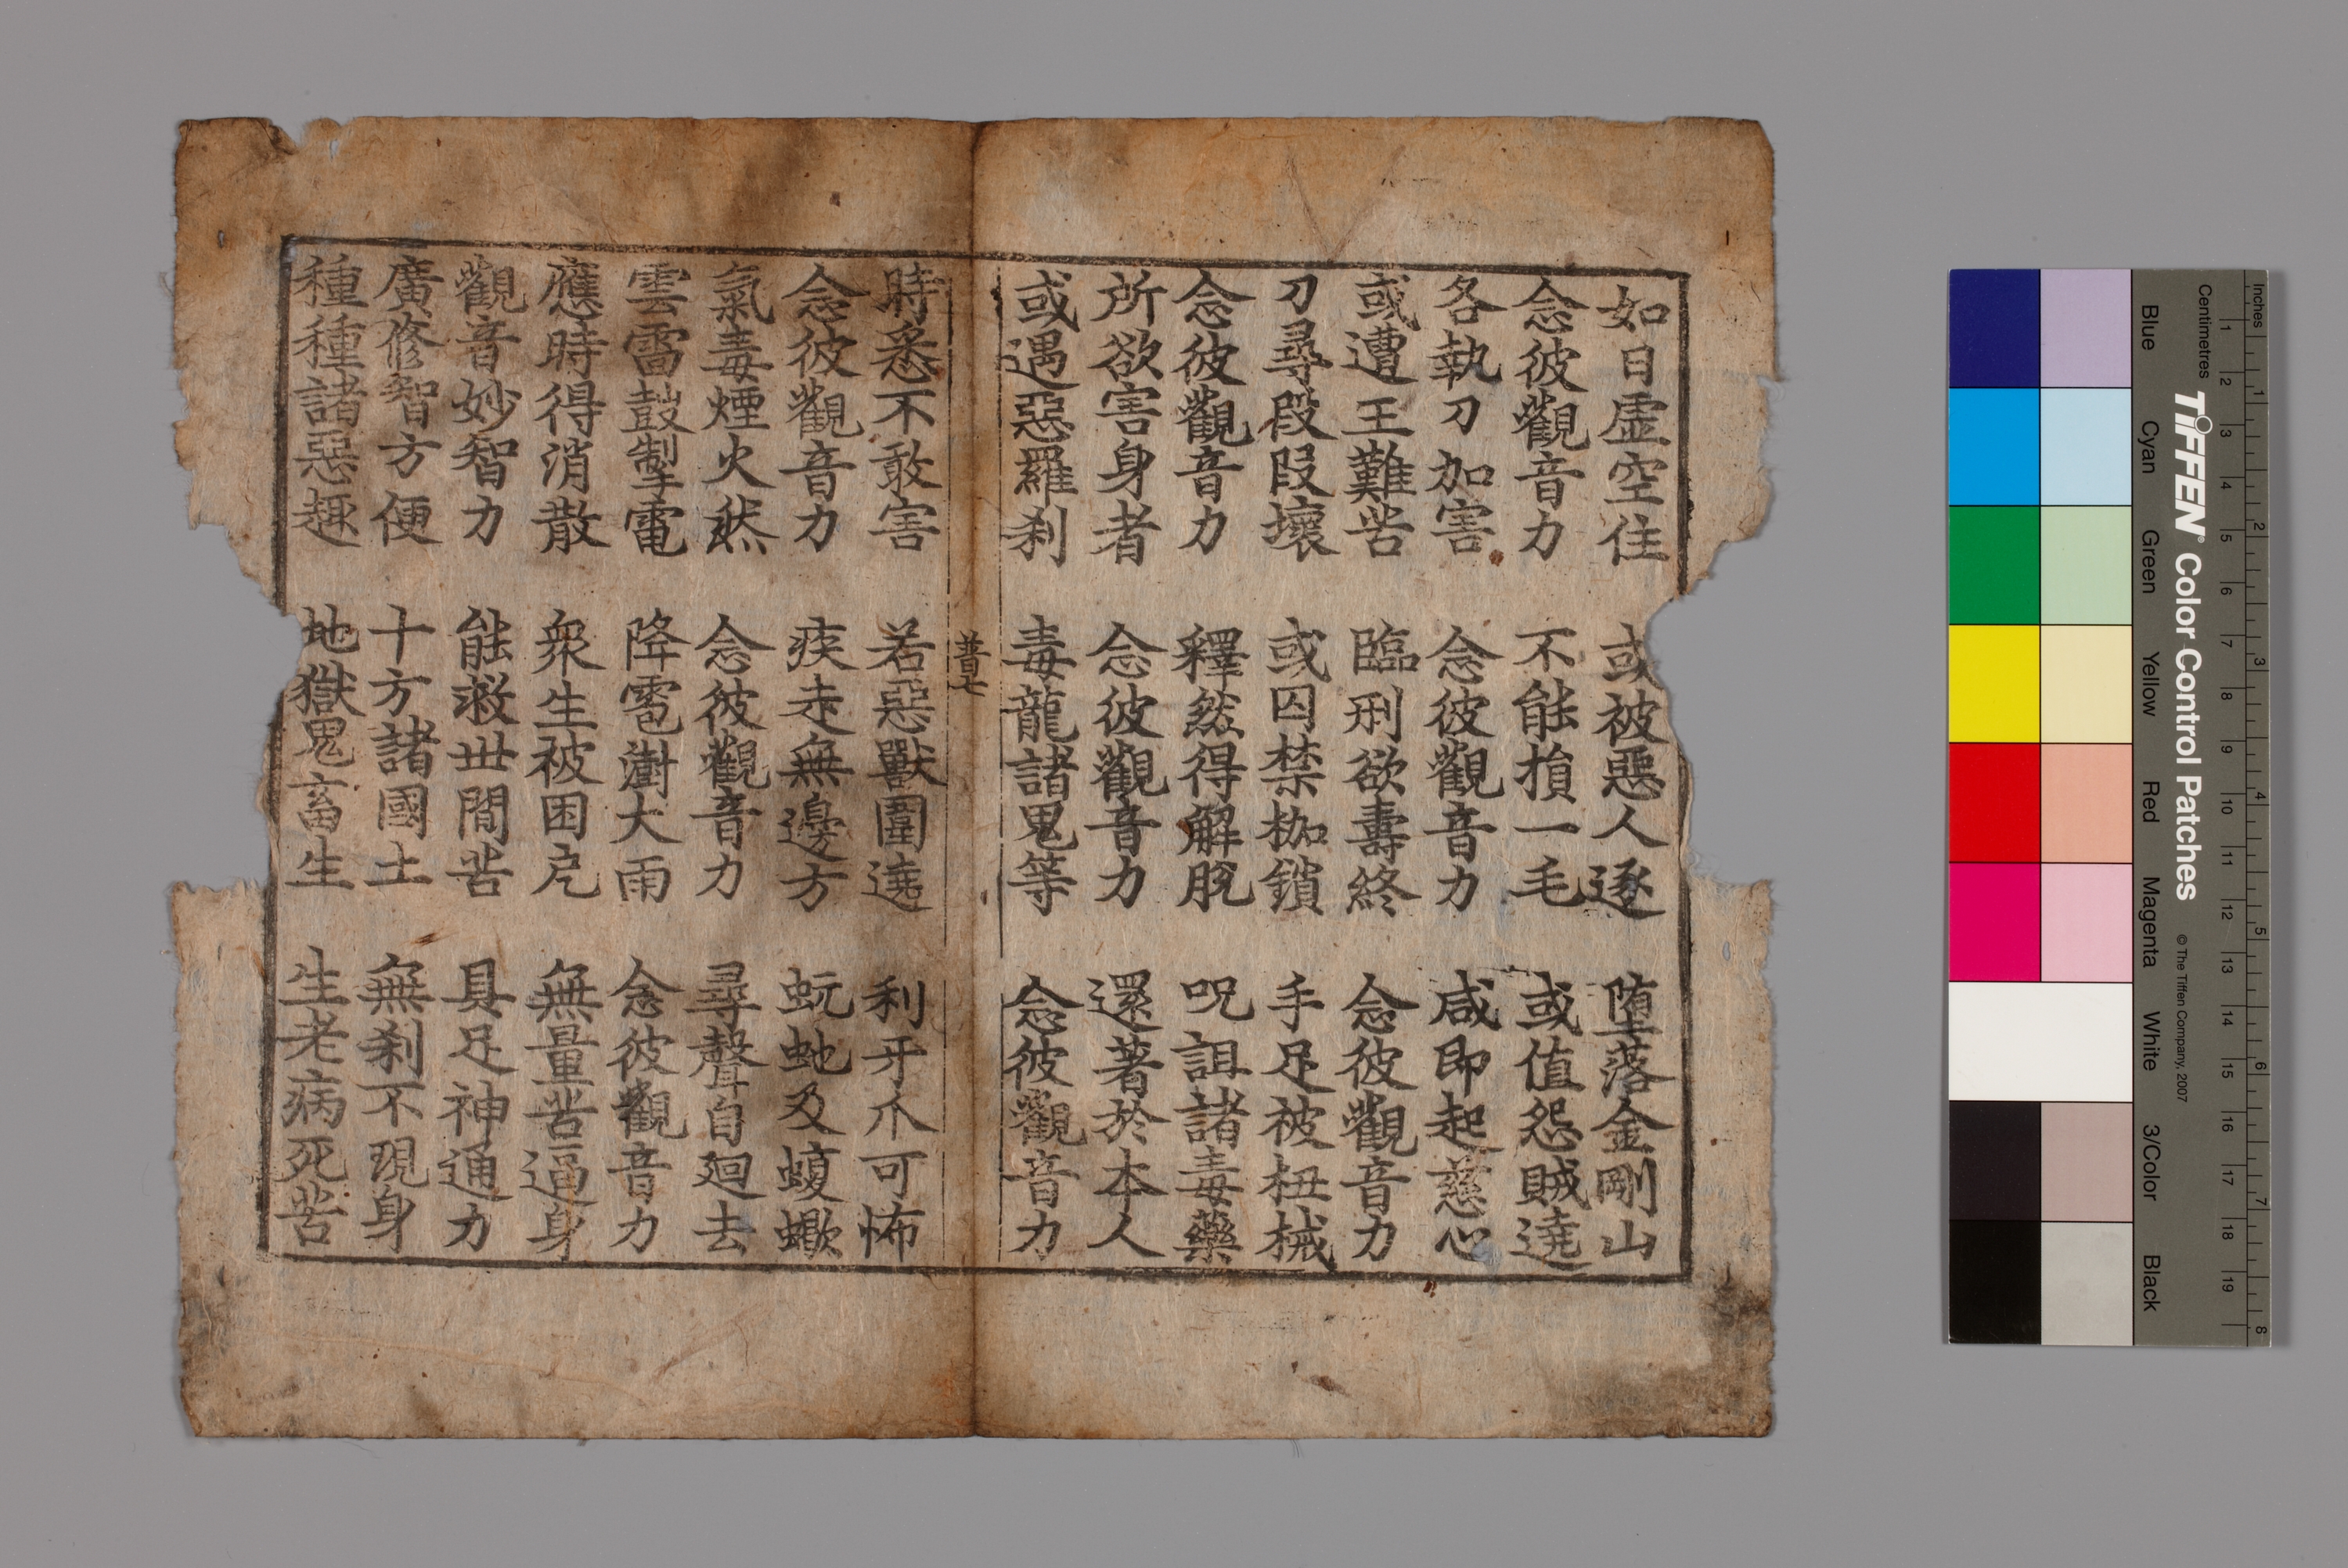 如日虛空住　或被惡人逐　堕落金剛山
念彼觀音力　不能損一毛　或值怨賊遶
各執刀加害　念彼觀音力　咸即起慈心
或遭王難苦　臨刑欲壽終　念彼觀音力
刀尋段段壞　或囚禁枷鎖　手足被杻械
念彼觀音力　釋然得解脫　呪詛諸毒藥
所欲害身者　念彼觀音力　還著於本人
或遇惡羅刹　毒龍諸鬼等　念彼觀音力
普七
時悉不敢害　若惡獸圍遶　利牙爪可怖
念彼觀音力　疾走無邊方　蚖虵及蝮蠍
氣毒煙火然　念彼觀音力　尋聲自廻去
雲雷鼓掣電　降雹澍大雨　念彼觀音力
應時得消散　衆生被困厄　無量苦逼身
觀音妙智力　能救世間苦　具足神通力
廣修智方便　十方諸國土　無刹不現身
種種諸惡趣　地獄鬼畜生　生老病死苦
Inches
Centimetres
1 2 3 4 5 6 7 8
1 2 3 4 5 6 7 8 9 10 11 12 13 14 15 16 17 18 19
TIFFEN® Color Control Patches © The Tiffen Company, 2007
Blue Cyan Green Yellow Red Magenta White 3/Color Black